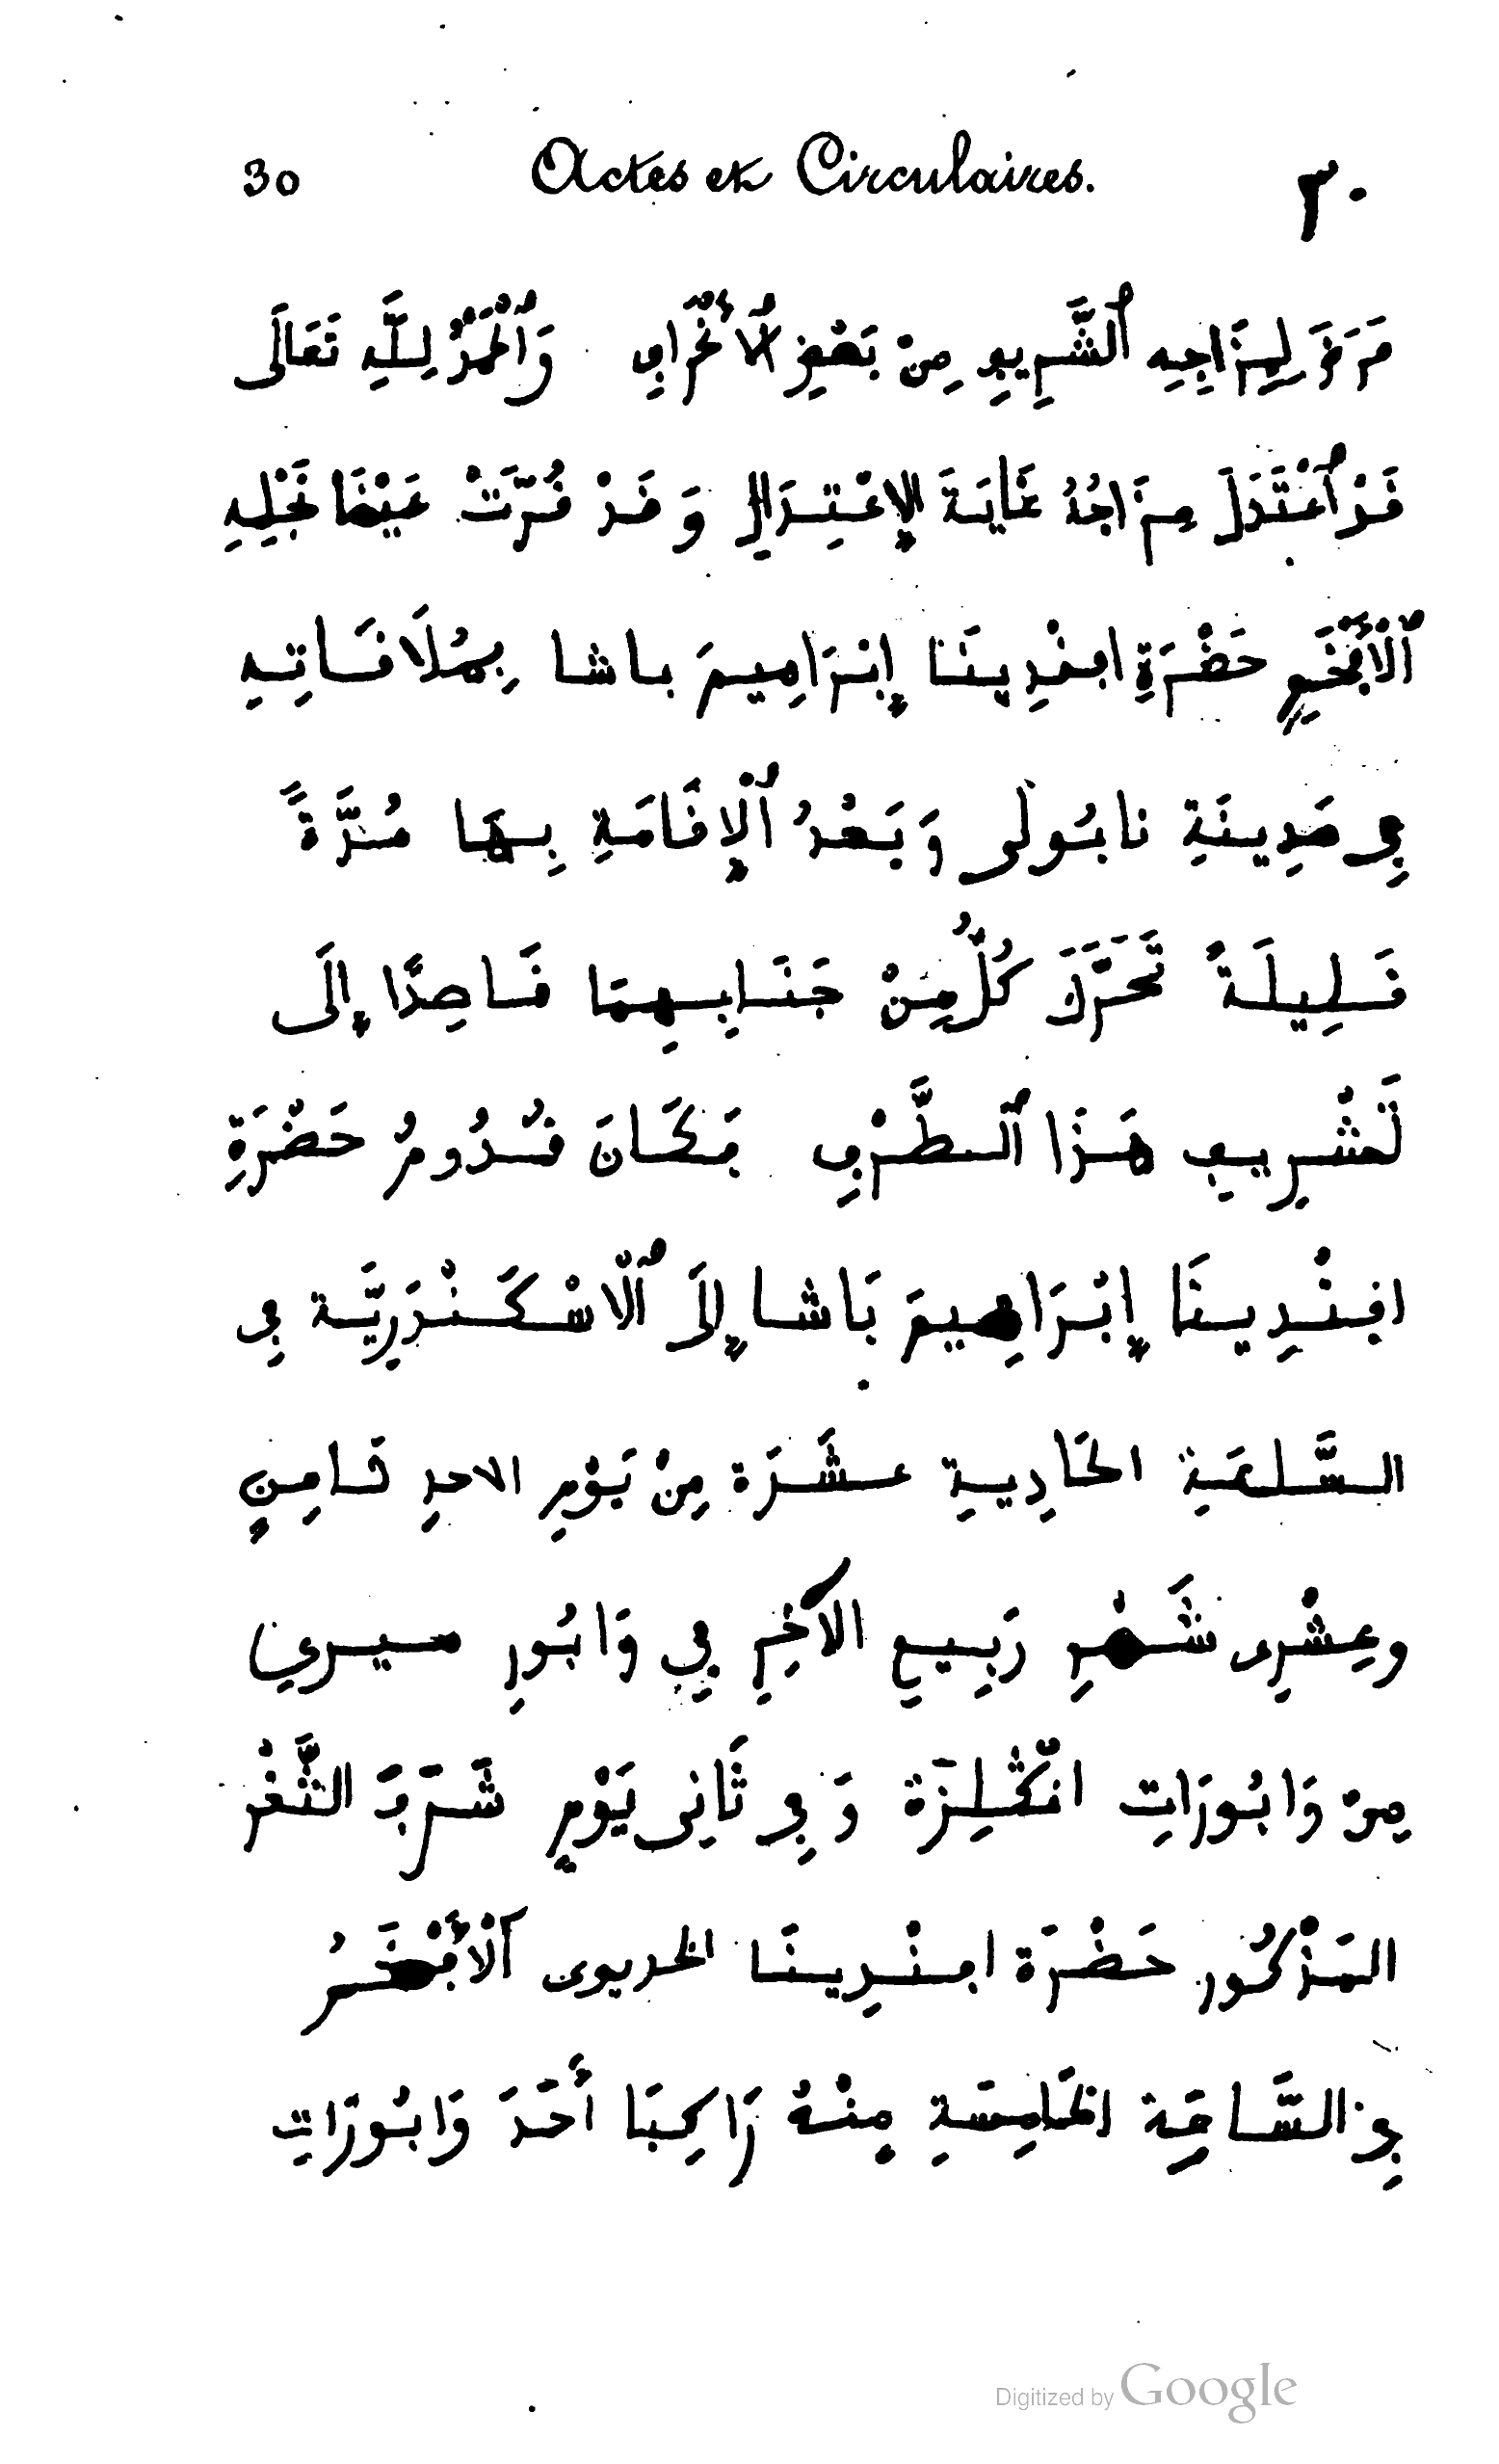 30 Actes et Circulaires. ٣٠
عَرَضَ لِمِزَاجِهِ ٱلشَّرِيفِ مِنْ بَعْضِ ٱلْأَنْحِرَافِ وَٱلْحَمْدُ لِلَّهِ تَعَالَى
قَدْ ٱعْتَدَلَ مِزَاجُهُ غَايَةَ الإِعْتِدَالِ وَ قَدْ قُرَّتْ عَيْنَا نَجْلِهِ
ٱلْأَفْخَمِ حَضْرَةِ افنْدِينَا إِبْرَاهِيمَ باشا بِمُلَاقَاتِهِ
فِي مَدِينَةِ نابُولى وَبَعْدُ ٱلْإِقَامَةِ بِهَا مُدَّةً
قَلِيلَةً تَحَرَّكَ كُلٌّ مِنْ جَنَابِهِمَا قَاصِدًا إِلَى
تَشْرِيفِ هَذَا ٱلطَّرْفِ فَكَانَ قُدُومُ حَضْرَةِ
افنْدِينَا إِبْرَاهِيمَ بَاشا إِلَى ٱلْاسْكَنْدَرِيَّة فِى
السَّاعَةِ الحَادِيةِ عشَرَة مِنْ يَوْمِ الاحدِ ثَامِنٍ
وعِشْرِى شَهْرِ رَبِيعِ الآخِرِ فِي وَابُورِ ميرى
مِنْ وَابُورَاتِ انْكْلِزَة وَفِى ثَانِى يَوْمٍ شَرَّفَ الثَّغْر
المَذْكُور حَضْرَة افنْدِينَا الخديوى ٱلْأَفْخَمُ
فِى السَّاعَةِ الخَامِسَةِ مِنْهُ رَاكِبَا أَحَدَ وَابُورَاتِ
Digitized by Google